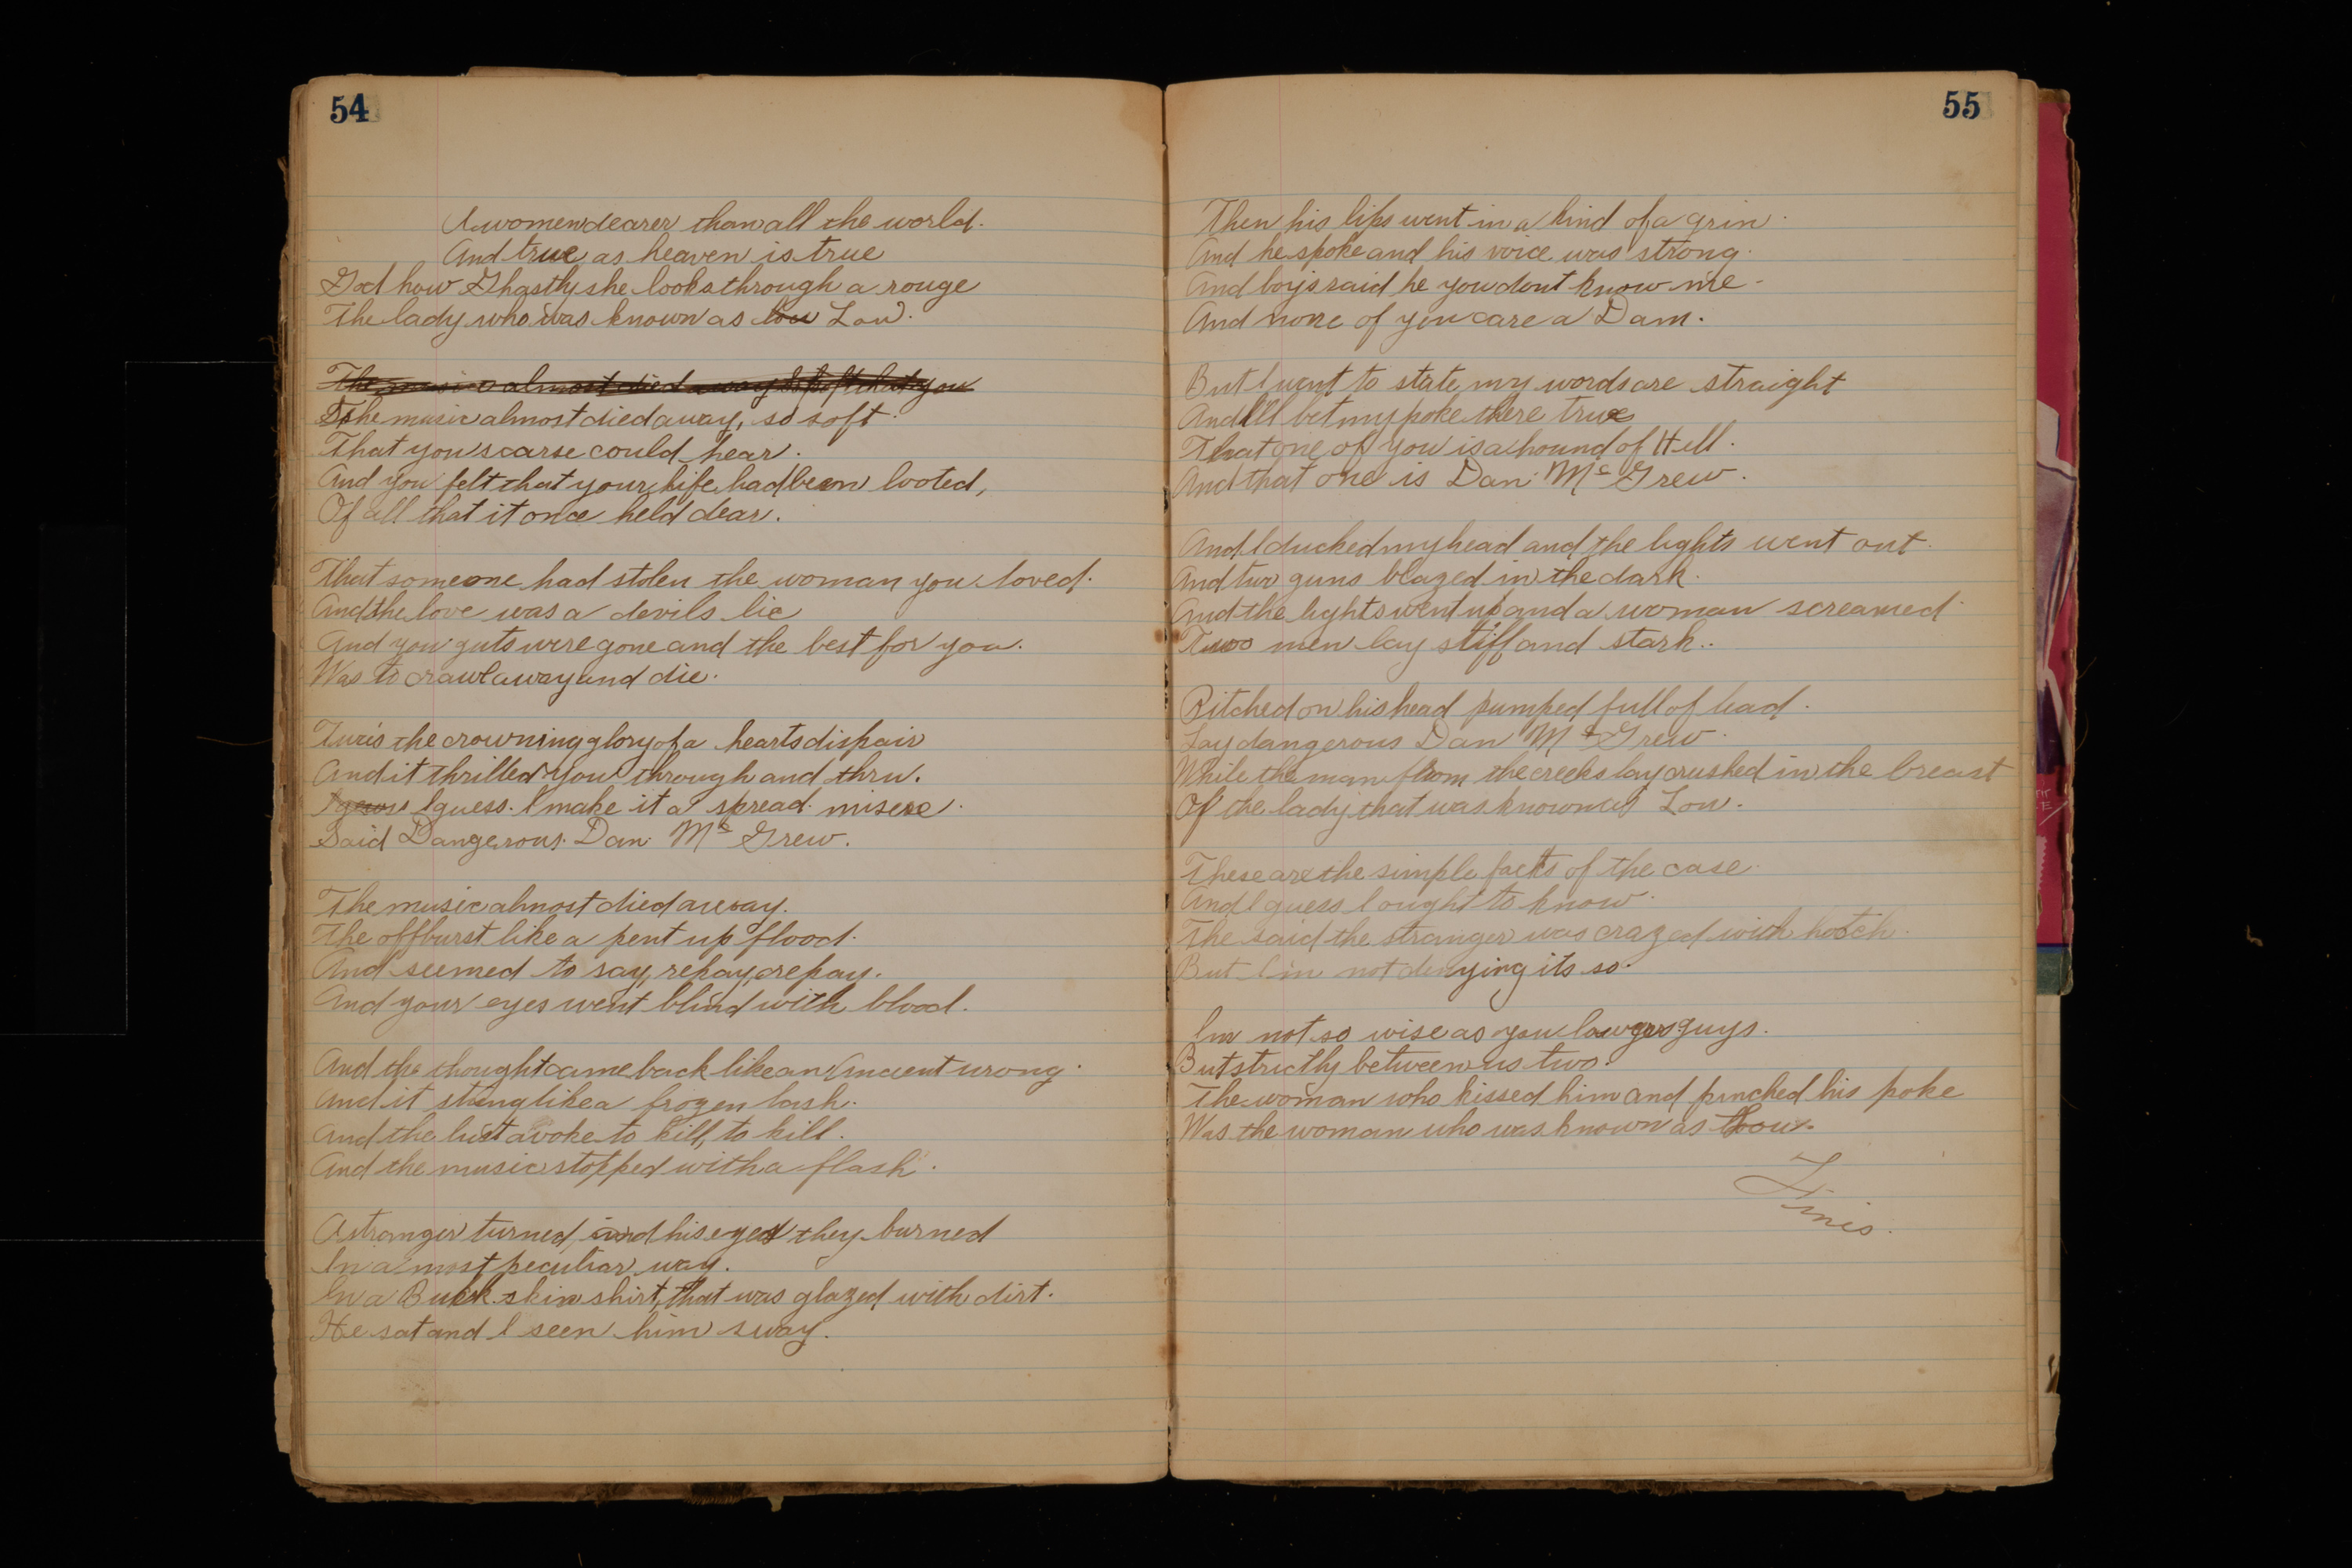 54
A women dearer than all the world.
And true as heaven is true
God how Ghastly she looks through a rouge
The lady who was known as lou Lou.
The music almost died away so soft that you
The music almost died away, so soft.
That you scarse could hear.
And you felt that your life had been looted,
Of all that it once held dear.
That someone had stolen the woman you loved.
And the love was a devils lie
And you guts were gone and the best for you.
Was to crawl away and die.
Twas the crowning glory of a hearts dispair
And it thrilled you through and thru.
I guess I guess. I make it a spread misere.
Said Dangerous. Dan Mc Grew.
The music almost died away.
The offburst like a pent up flood.
And seemed to say, repay, repay.
And your eyes went blind with blood.
And the thought came back like an Ancient wrong.
And it stung like a frozen lash.
And the lust avoke to kill, to kill.
And the music stopped with a flash.
A stranger turned, and his eyes they burned
In a most peculiar way.
In a Buck skin shirt, that was glazed with dirt.
He sat and I seen him sway.
55
Then his lips went in a kind of a grin.
And he spoke and his voice was strong.
And boys said he you dont know me -
And none of you care a Dam.
But I want to state my words are straight
And I'll bet my poke there true
That one of you is a hound of Hell.
And that one is Dan Mc Grew.
And I ducked my head and the lights went out.
And two guns blazed in the dark.
And the lights went up and a woman screamed.
Two men lay stiff and stark..
Pitched on his head pumped full of lead.
Lay dangerous Dan Mc Grew.
While the man from the creeks lay crushed in the breast
Of the lady that was known as Lou.
These are the simple facts of the case.
And I guess I ought to know.
The said the stranger was crazed with hootch.
But I'm not denying its so.
Im not so wise as you lawyers guys.
But strictly between us two.
The woman who kissed him and pinched his poke
Was the woman who was known as Lou.
Finis.